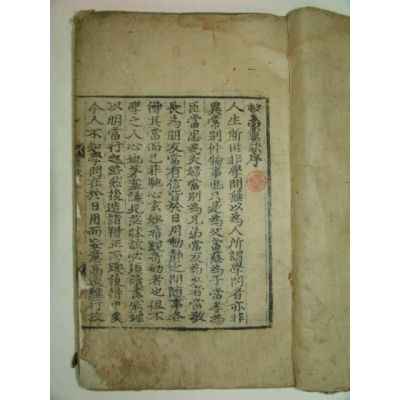 擊蒙要訣序
人生斯世非學問無以為人所謂學問者亦非
異常別件物事也只是為父當慈為子當孝為
臣當忠為夫婦當別為兄弟當友為少者當敬
長為朋友當有信皆於日用動靜之間隨事各
得其當而已非馳心玄妙希覬奇效者也但不
學之人心地茅塞識見茫昧故必須讀書窮理
以明當行之路然後造詣得正而踐履得中矣
今人不知學問在於日用而妄意高遠難行故